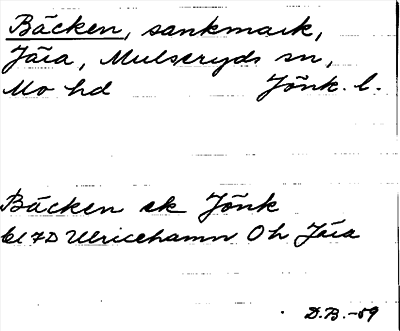 Bäcken, sankmark,
Jära, Mulseryds sn,
Mo hd Jönk. l.
Bäcken ek Jönk
bl 7D Ulricehamn Oh Jära
D.B.-59